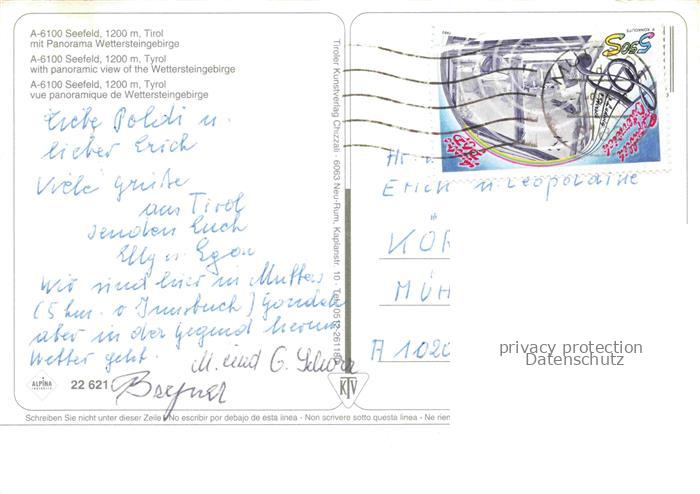 A-6100 Seefeld, 1200 m, Tirol
mit Panorama Wettersteingebirge
A-6100 Seefeld, 1200 m, Tyrol
with panoramic view of the Wettersteingebirge
A-6100 Seefeld, 1200 m, Tyrol
vue panoramique de Wettersteingebirge
Liebe Poldi u.
lieber Erich
Viele Grüße
aus Tirol
senden Euch
Elly u. Egon
Wir sind hier in Mutters
(5 km. v Innsbruck)
aber in der Gegend herum
Wetter geht.
M. und G.
ALPINA
22 621
Tiroler Kunstverlag Chizzali · 6063 Neu-Rum, Kaplanstr. 10
KTV
Schreiben Sie nicht unter dieser Zeile · No escribir por debajo de esta linea · Non scrivere sotto questa linea · Ne rien
Hr. u.
Erich u. Leopoldine
KÖR
MÜH
A 1020
privacy protection
Datenschutz